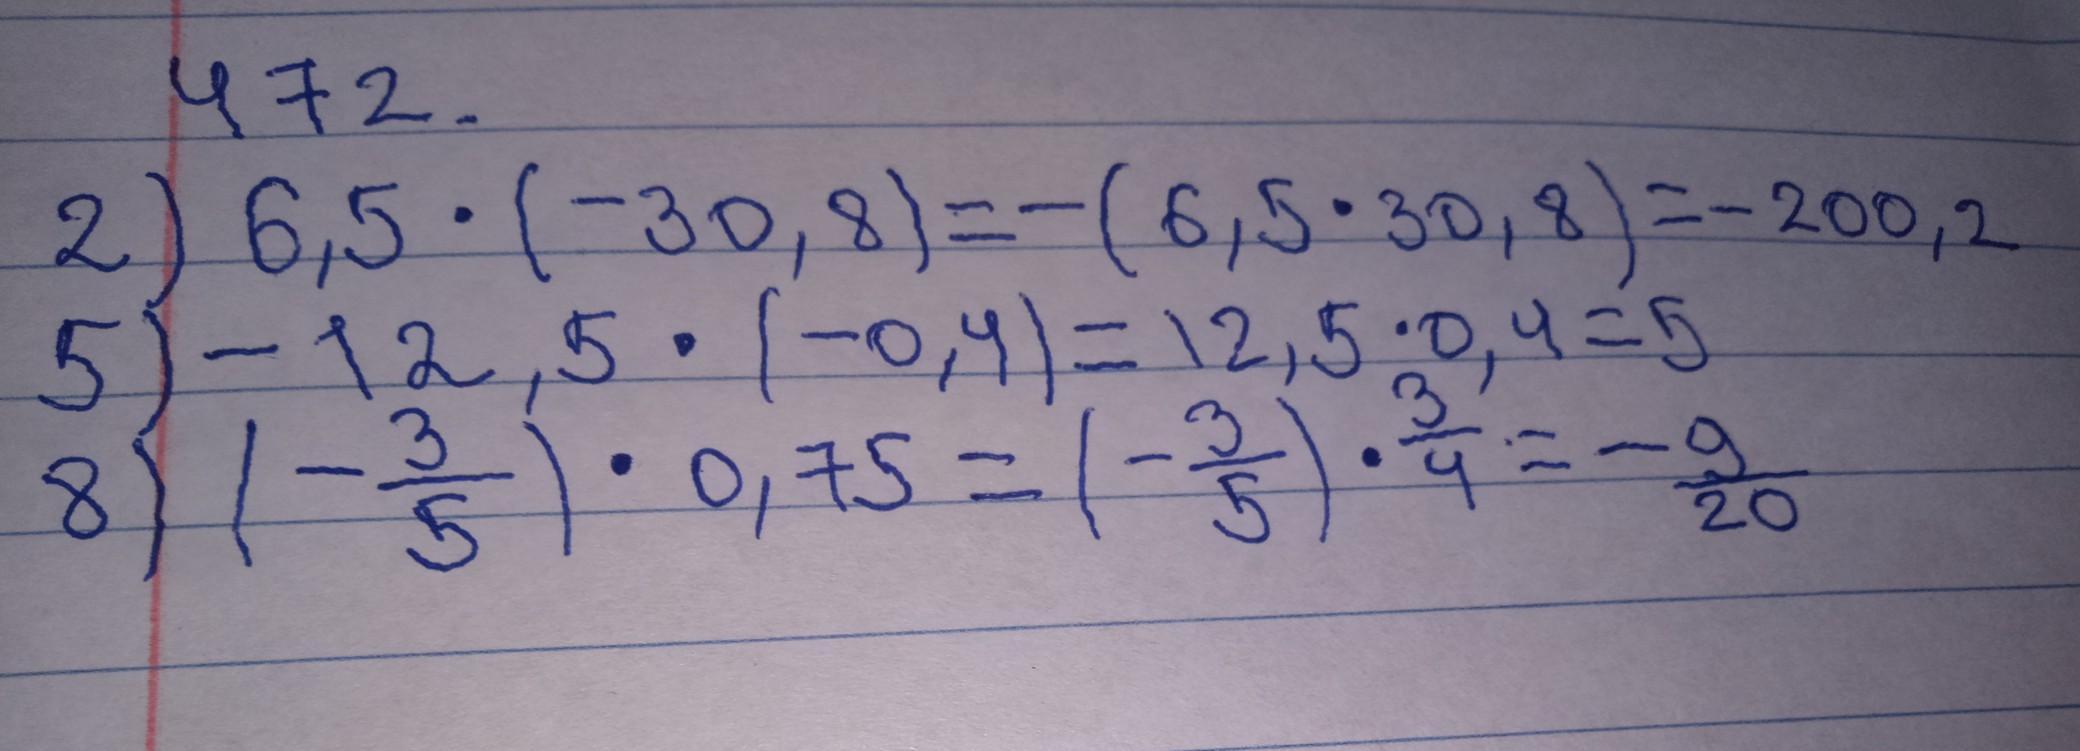 472.
2) 6,5·(-30,8)=-(6,5·30,8)=-200,2
5) -12,5·(-0,4)=12,5·0,4=5
8) (-3/5)·0,75=(-3/5)·3/4=-9/20